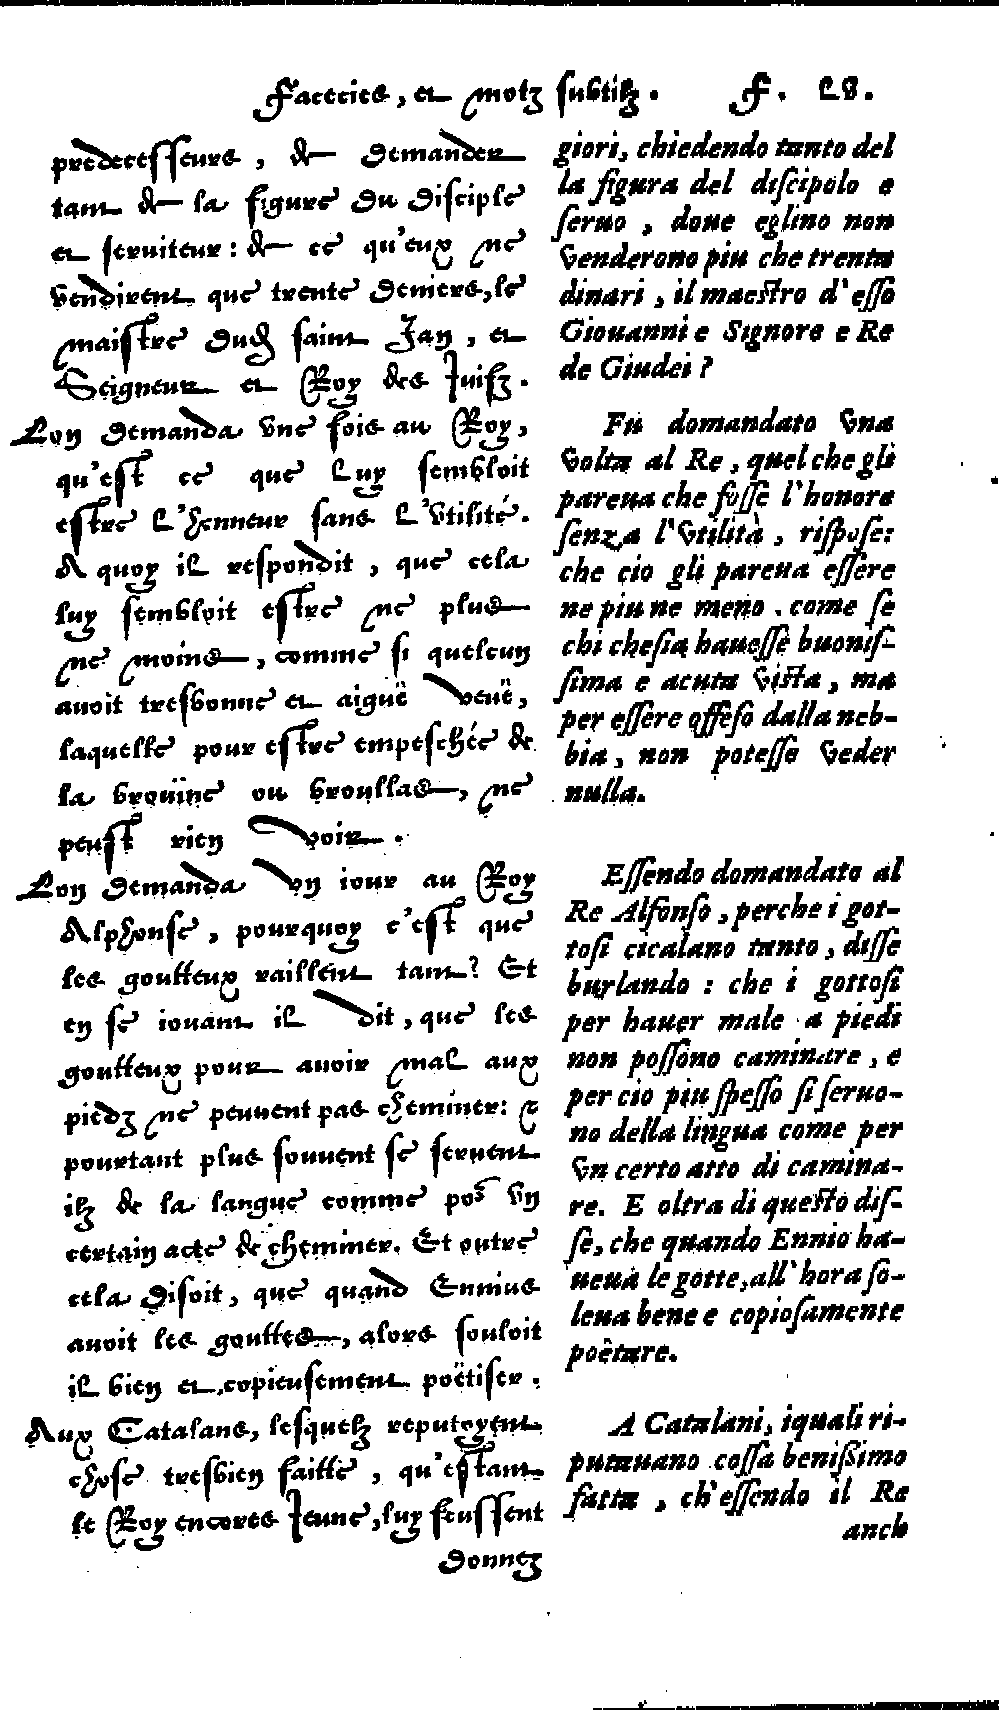 Facecies, et motz subtilz. F. 28.
predecesseurs, & demander
tant de la figure du disciple
et seruiteur: & ce qu'eux ne
vendirent que trente deniers, le
maistre dud saint Jan, et
Seigneur et Roy des Juifz.
Lon demanda vne fois au Roy,
qu'est ce que luy sembloit
estre l'honneur sans l'vtilité.
A quoy il respondit, que cela
luy sembloit estre ne plus
ne moins, comme si quelcun
auoit tresbonne et aiguë veuë,
laquelle pour estre empeschée de
la brouïne ou broullas, ne
peust rien voir.
Lon demanda vn iour au Roy
Alphonse, pourquoy c'est que
les goutteux raillent tant? Et
en se iouant il dit, que les
goutteux pour auoir mal aux
piedz ne peuuent pas cheminer: &
pourtant plus souuent se seruent
ilz de la langue comme por vn
certain acte de cheminer. Et outre
cela disoit, que quand Ennius
auoit les gouttes, alors souloit
il bien et copieusement poëtiser.
Aux Catalans, lesquelz reputoyent
chose tresbien faitte, qu'estant
le Roy encores Jeune, luy feussent
donnez
giori, chiedendo tanto del
la figura del discipolo e
seruo, doue eglino non
venderono piu che trenta
dinari, il maestro d'esso
Giouanni e Signore e Re
de Giudei?
Fu domandato vna
volta al Re, quel che gli
pareua che fusse l'honore
senza l'vtilità, rispose:
che cio gli pareua essere
ne piu ne meno. come se
chi chesia hauesse buonis-
sima e acuta vista, ma
per essere offeso dalla neb-
bia, non potesse veder
nulla.
Essendo domandato al
Re Alfonso, perche i got-
tosi cicalano tanto, disse
burlando: che i gottosi
per hauer male a piedi
non possono caminare, e
per cio piu spesso si seruo-
no della lingua come per
vn certo atto di camina-
re. E oltra di questo dis-
se, che quando Ennio ha-
ueua le gotte, all'hora so-
leua bene e copiosamente
poëtare.
A Catalani, iquali ri-
putauano cossa benissimo
fatta, ch'essendo il Re
anch